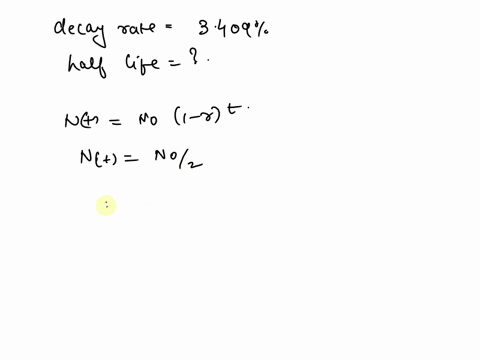 decay rate = 3.409%
half life = ?.
N(t) = No (1-r)^t.
N(t) = No/2
: